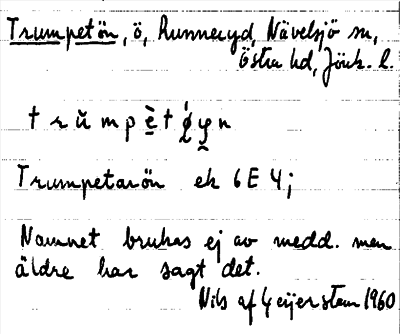 Trumpetön, ö, Runneryd, Nävelsjö sn,
Östra hd, Jönk. l.
Trumpetarön ek 6E 4;
Namnet brukas ej av medd. men
äldre har sagt det.
Nils af Geijerstam 1960